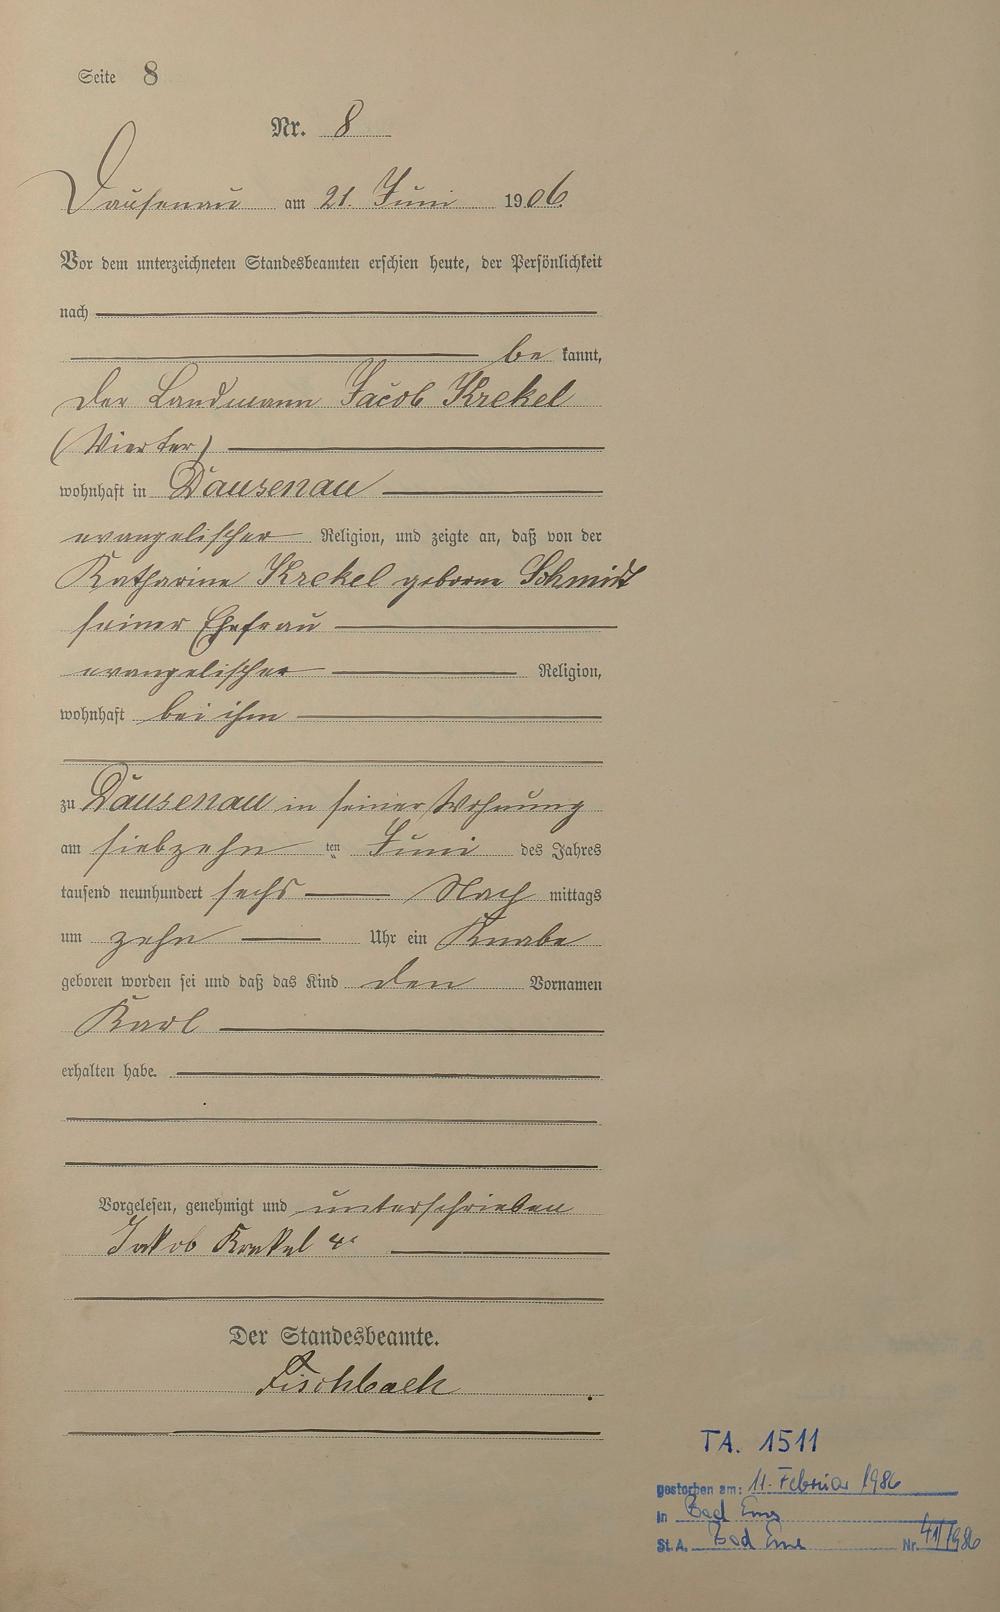 Seite 8
Nr. 8
Dausenau am 21. Juni 1906.
Vor dem unterzeichneten Standesbeamten erschien heute, der Persönlichkeit
nach
be kannt,
der Landmann Jacob Krekel
(Vierter)
wohnhaft in Dausenau
evangelischer Religion, und zeigte an, daß von der
Katharina Krekel geborne Schmidt
seiner Ehefrau
evangelischer Religion,
wohnhaft bei ihm
zu Dausenau in seiner Wohnung
am siebzehn ten Juni des Jahres
tausend neunhundert sechs Nach mittags
um zehn Uhr ein Knabe
geboren worden sei und daß das Kind den Vornamen
Karl
erhalten habe.
Vorgelesen, genehmigt und unterschrieben
Jakob Krekel 4r
Der Standesbeamte.
Fischbach
TA. 1511
gestorben am: 11. Februar 1986
in Bad Ems
St. A. Bad Ems Nr. 41/1986